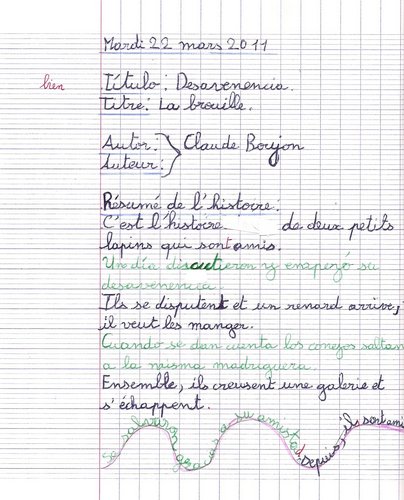 Mardi 22 mars 2011
bien
Título : Desavenencia.
Titre : La brouille.
Autor :
Auteur :
Claude Boujon
Résumé de l'histoire :
C'est l'histoire de deux petits
lapins qui sont amis.
Un día discutieron y empezó su
desavenencia.
Ils se disputent et un renard arrive,
il veut les manger.
Cuando se dan cuenta los conejos saltan
a la misma madriguera.
Ensemble, ils creusent une galerie et
s'échappent.
Se salvaron gracias a su amistad. Depuis, ils sont ami